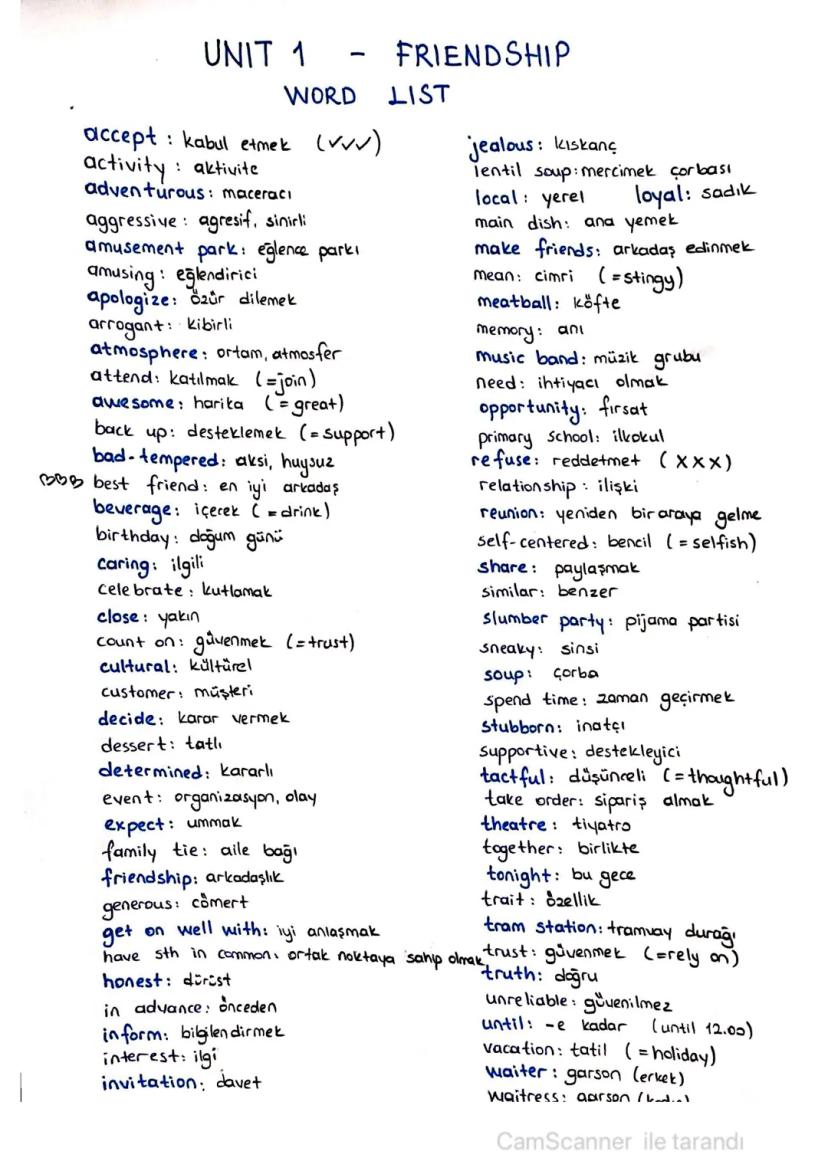 UNIT 1 - FRIENDSHIP
WORD LIST
accept : kabul etmek (✓✓✓)
activity : aktivite
adventurous : maceracı
aggressive : agresif, sinirli
amusement park : eğlence parkı
amusing : eğlendirici
apologize : özür dilemek
arrogant : kibirli
atmosphere : ortam, atmosfer
attend : katılmak (=join)
awesome : harika (= great)
back up : desteklemek (=support)
bad-tempered : aksi, huysuz
♡♡♡ best friend : en iyi arkadaş
beverage : içecek ( =drink)
birthday : doğum günü
caring : ilgili
celebrate : kutlamak
close : yakın
count on : güvenmek (=trust)
cultural : kültürel
customer : müşteri
decide : karar vermek
dessert : tatlı
determined : kararlı
event : organizasyon, olay
expect : ummak
family tie : aile bağı
friendship : arkadaşlık
generous : cömert
get on well with : iyi anlaşmak
have sth in common : ortak noktaya sahip olmak
honest : dürüst
in advance : önceden
inform : bilgilendirmek
interest : ilgi
invitation : davet
jealous : kıskanç
lentil soup : mercimek çorbası
local : yerel loyal : sadık
main dish : ana yemek
make friends : arkadaş edinmek
mean : cimri (=stingy)
meatball : köfte
memory : anı
music band : müzik grubu
need : ihtiyacı olmak
opportunity : fırsat
primary school : ilkokul
refuse : reddetmet ( X X X )
relationship : ilişki
reunion : yeniden bir araya gelme
self-centered : bencil ( = selfish)
share : paylaşmak
similar : benzer
slumber party : pijama partisi
sneaky : sinsi
soup : çorba
spend time : zaman geçirmek
stubborn : inatçı
supportive : destekleyici
tactful : düşünceli (=thoughtful)
take order : sipariş almak
theatre : tiyatro
together : birlikte
tonight : bu gece
trait : özellik
tram station : tramvay durağı
trust : güvenmek (=rely on)
truth : doğru
unreliable : güvenilmez
until : -e kadar (until 12.00)
vacation : tatil ( =holiday)
waiter : garson (erkek)
waitress : garson
CamScanner ile tarandı